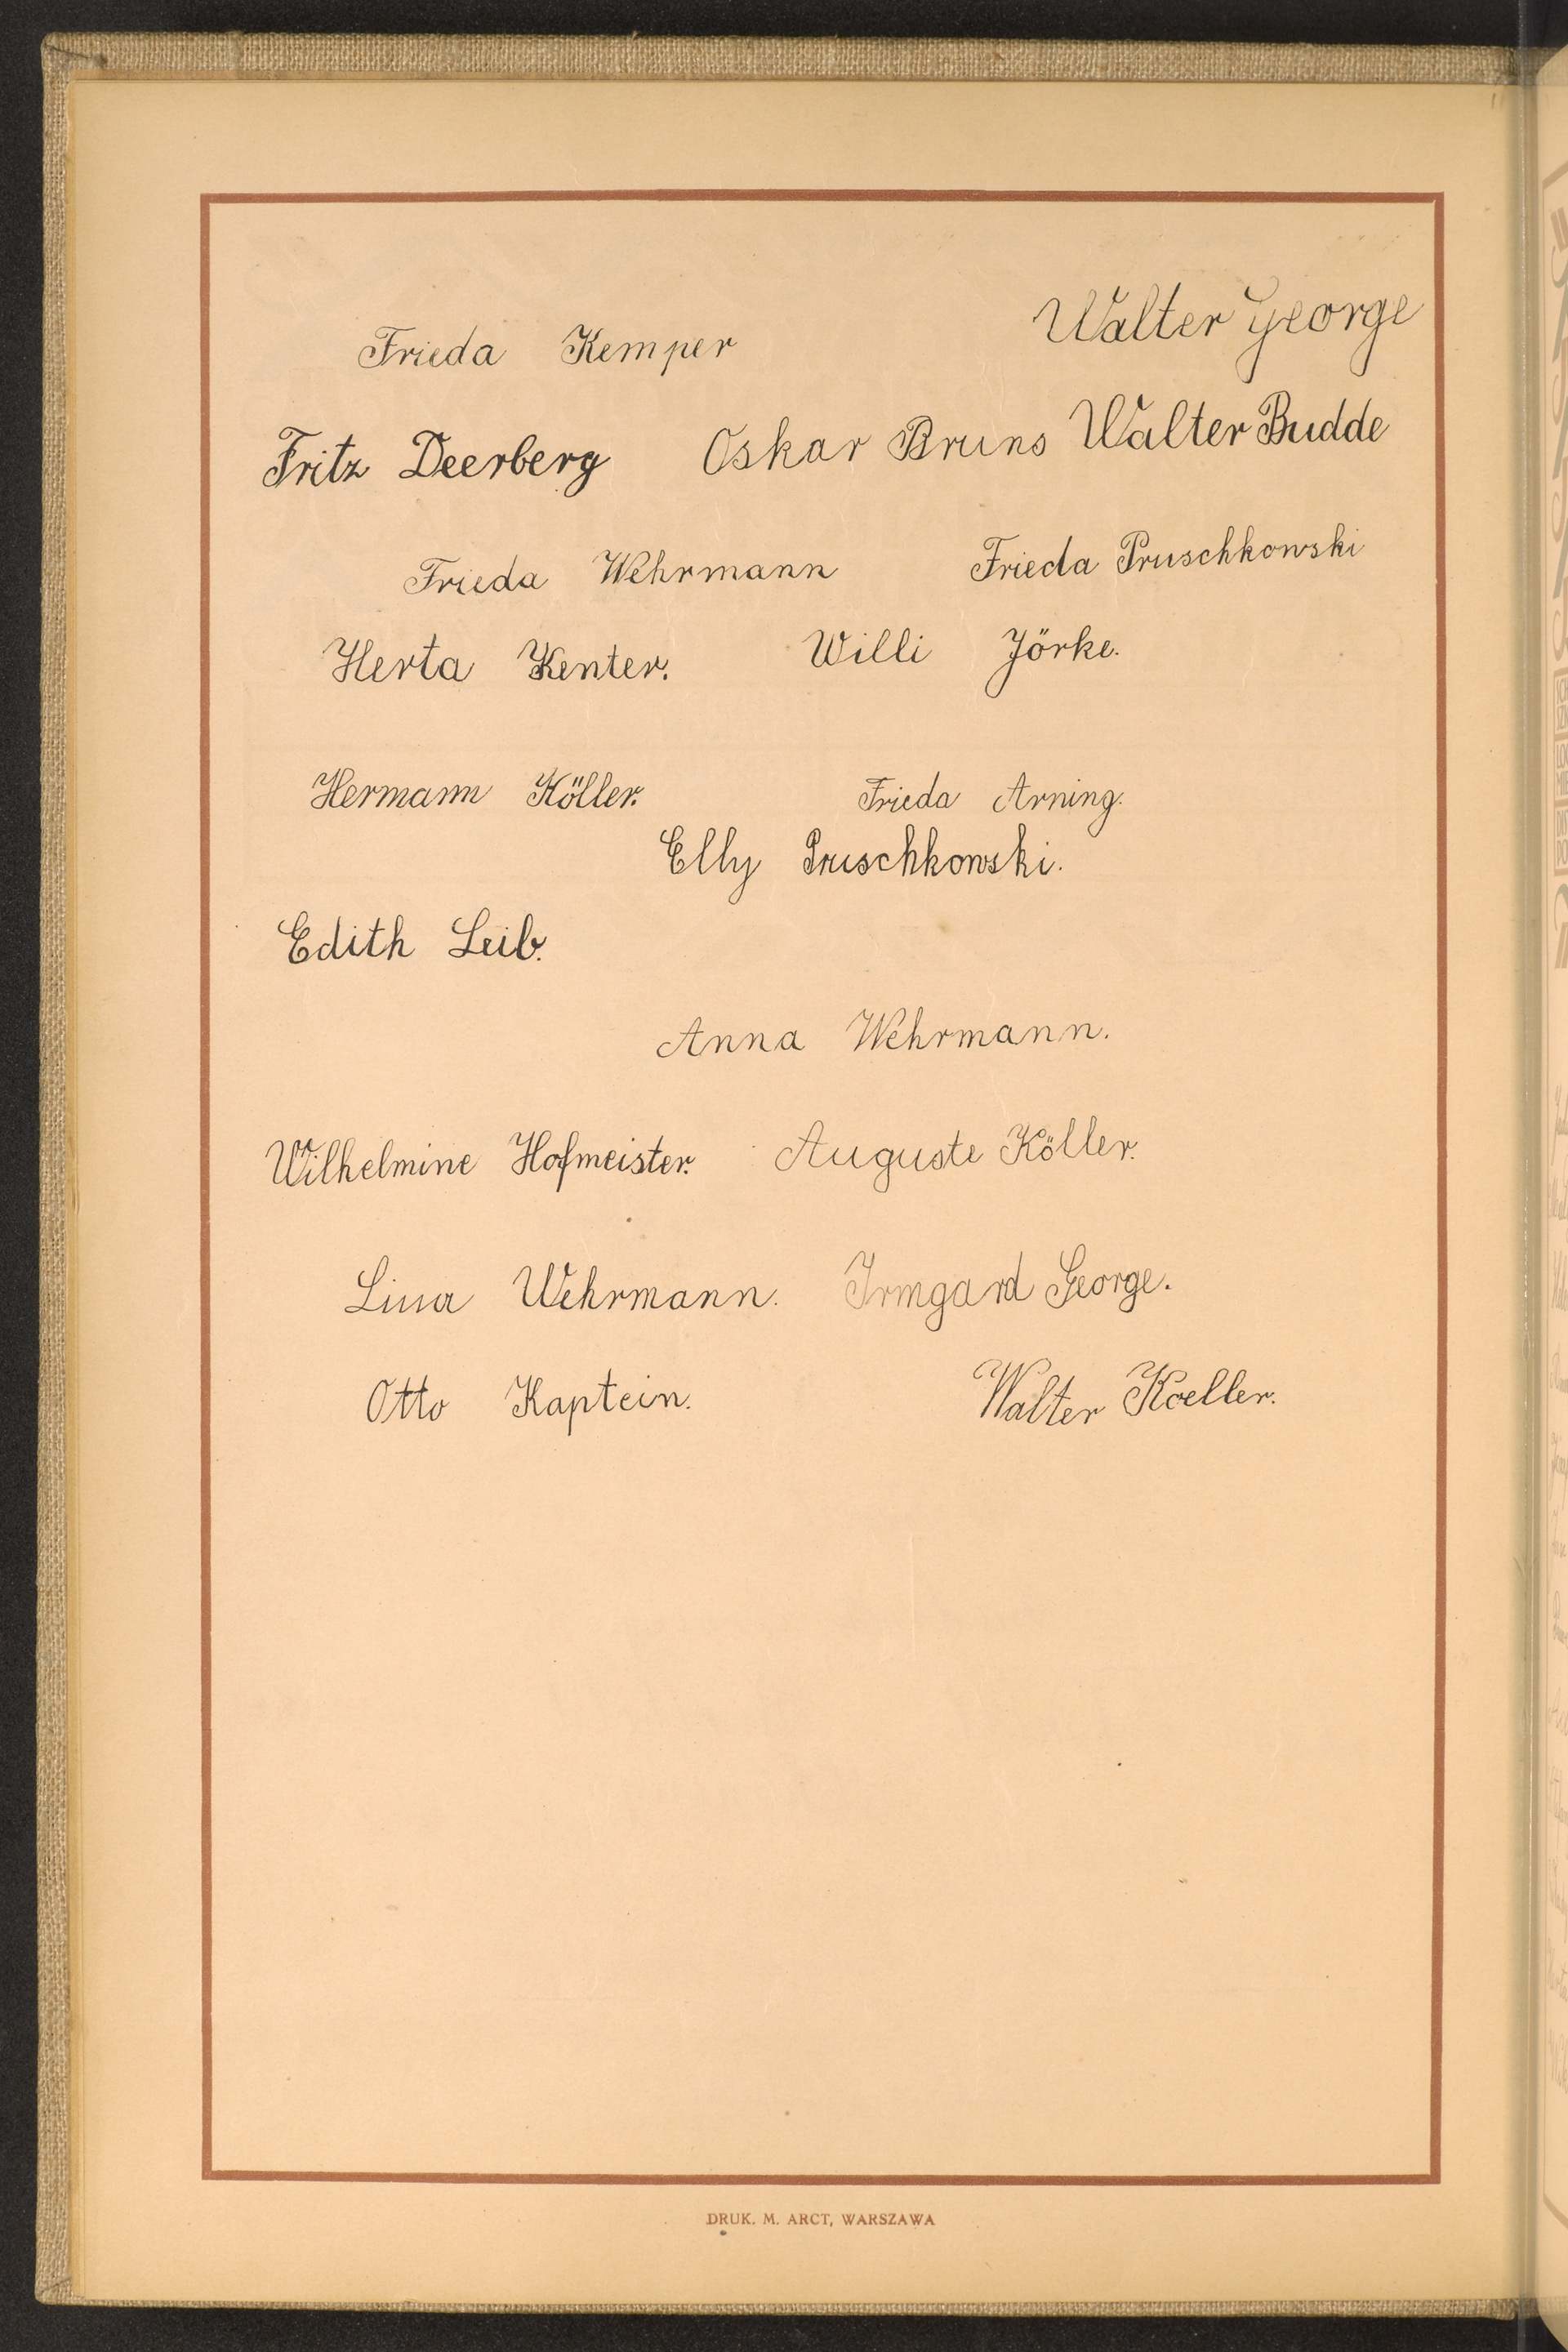 Frieda Kemper Walter George
Fritz Deerberg Oskar Bruns Walter Budde
Frieda Wehrmann Frieda Pruschkowski
Herta Kenter. Willi Jörke.
Hermann Köller. Frieda Arning.
Elly Pruschkowski.
Edith Leib.
Anna Wehrmann.
Wilhelmine Hofmeister. Auguste Köller.
Lina Wehrmann. Irmgard George.
Otto Kaptein. Walter Koeller.
DRUK. M. ARCT, WARSZAWA